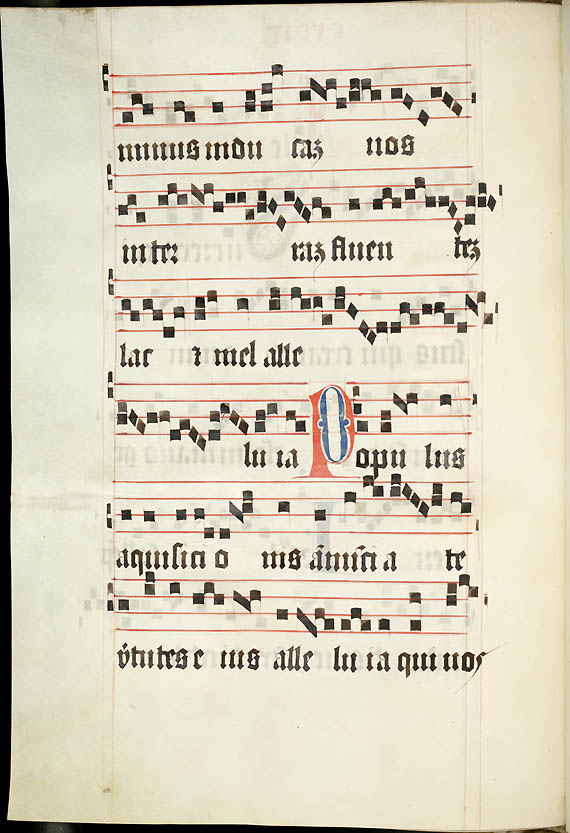 minus indu caꝫ nos
in ter raꝫ fluen teꝫ
lac ⁊ mel alle
lu ia Populus
aquisici o nis ānūci a te
v̓tutes e ius alle lu ia qui uos